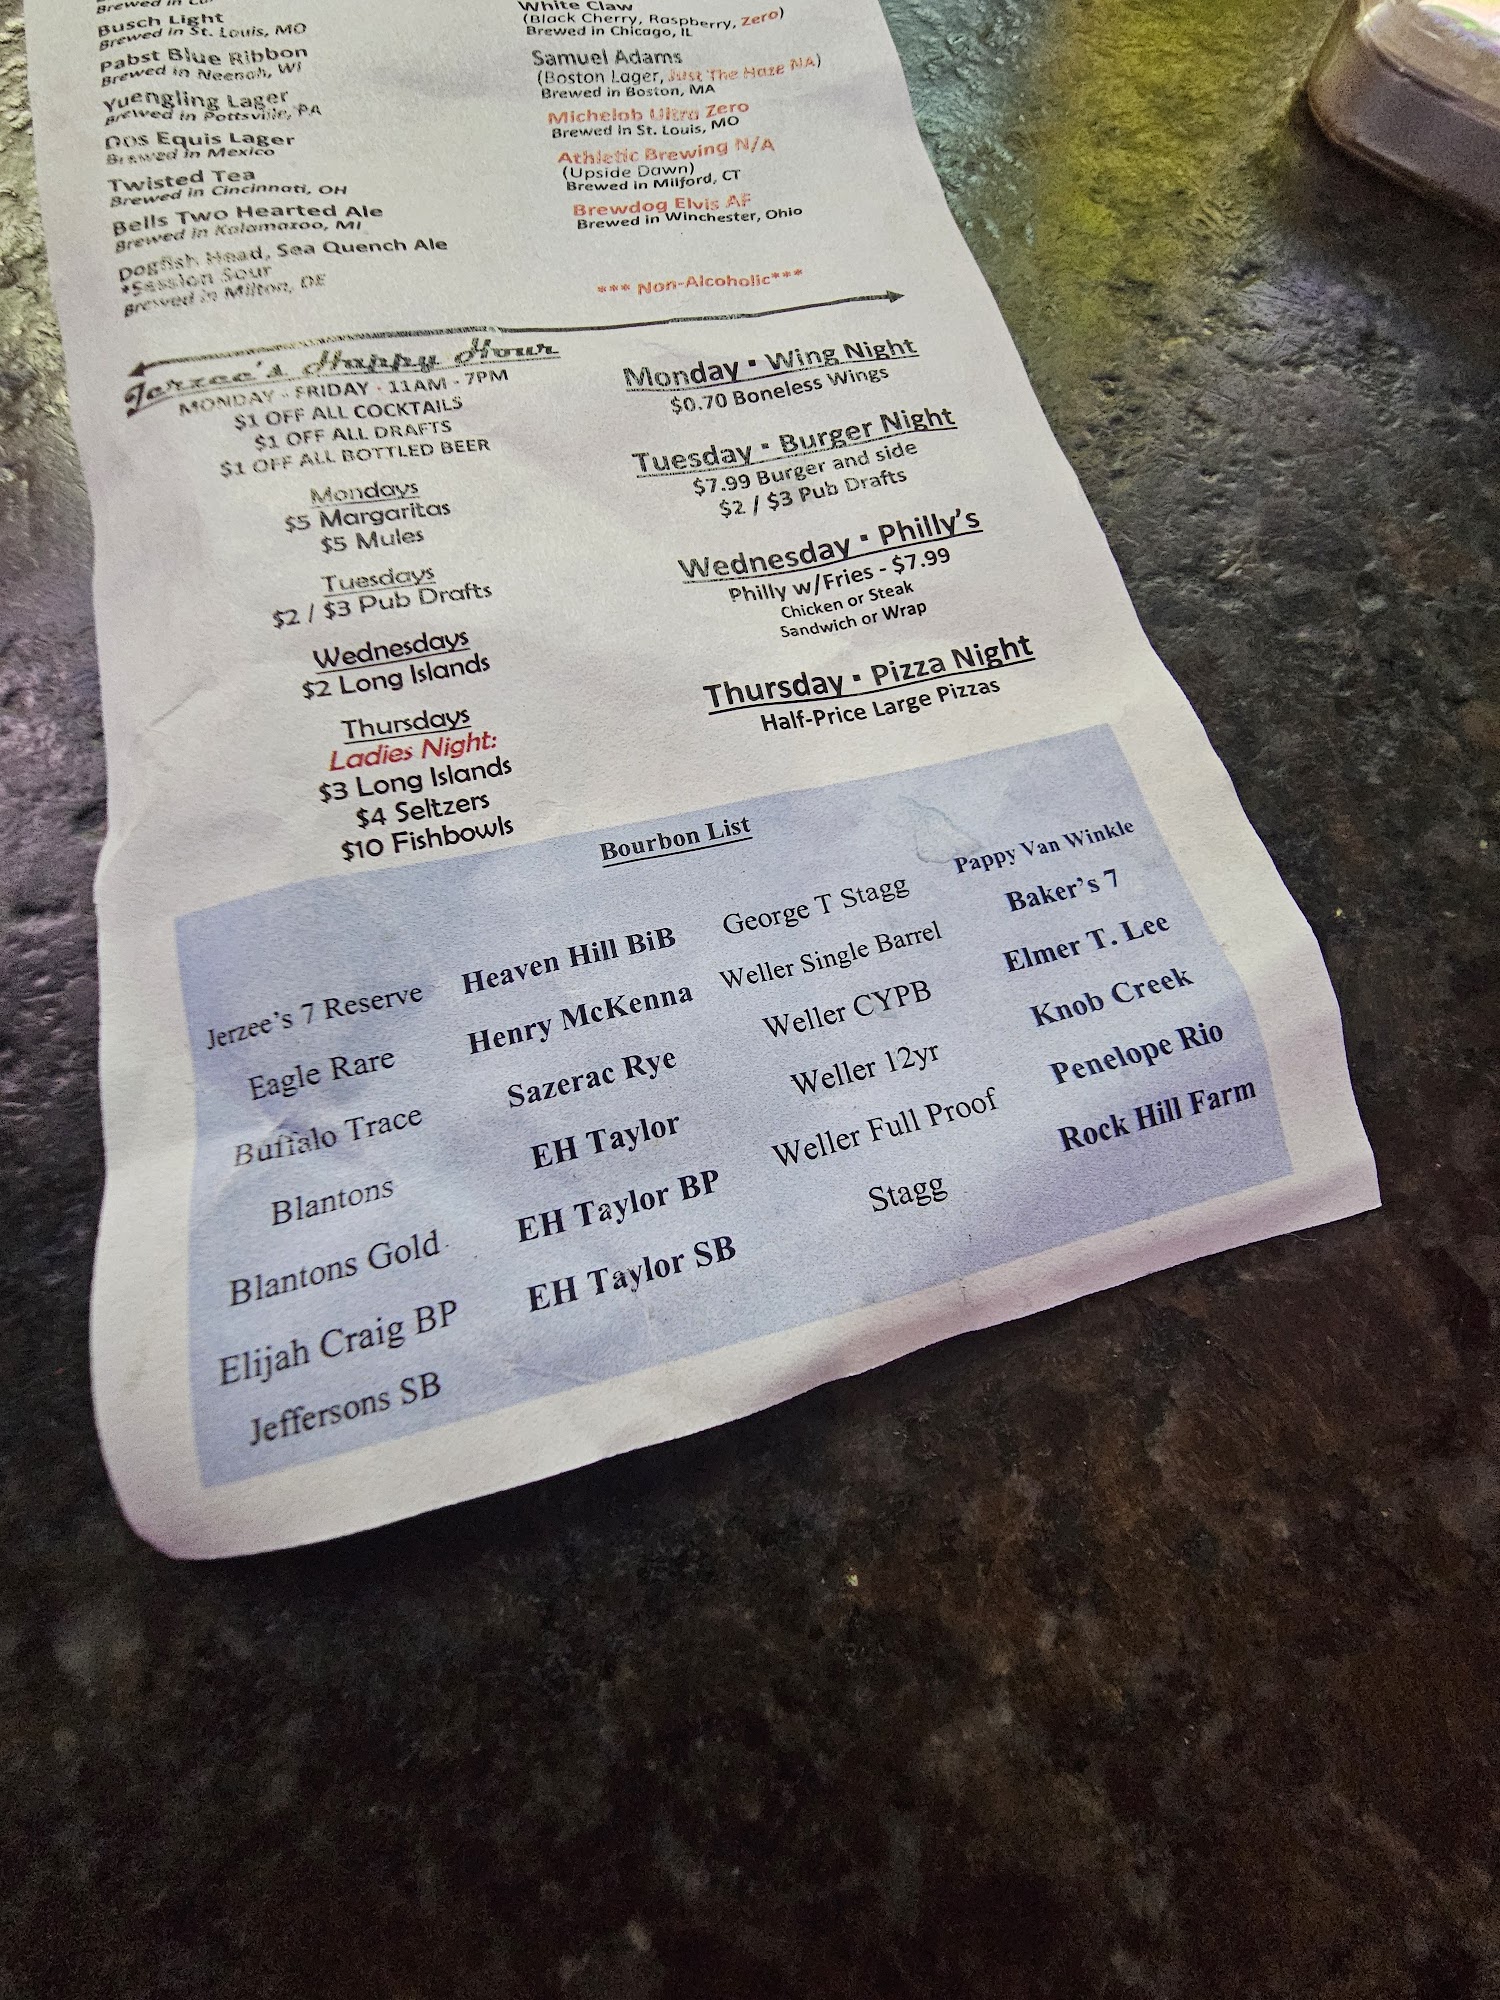 Brewed in
Busch Light
Brewed in St. Louis, MO
Pabst Blue Ribbon
Brewed in Neenah, WI
Yuengling Lager
Brewed in Pottsville, PA
Dos Equis Lager
Brewed in Mexico
Twisted Tea
Brewed in Cincinnati, OH
Bells Two Hearted Ale
Brewed in Kalamazoo, MI
Dogfish Head, Sea Quench Ale
*Session Sour
Brewed in Milton, DE
White Claw
(Black Cherry, Raspberry, Zero)
Brewed in Chicago, IL
Samuel Adams
(Boston Lager, Just The Haze NA)
Brewed in Boston, MA
Michelob Ultra Zero
Brewed in St. Louis, MO
Athletic Brewing N/A
(Upside Dawn)
Brewed in Milford, CT
Brewdog Elvis AF
Brewed in Winchester, Ohio
*** Non-Alcoholic***
Jerzee's Happy Hour
MONDAY - FRIDAY - 11AM - 7PM
$1 OFF ALL COCKTAILS
$1 OFF ALL DRAFTS
$1 OFF ALL BOTTLED BEER
Mondays
$5 Margaritas
$5 Mules
Tuesdays
$2 / $3 Pub Drafts
Wednesdays
$2 Long Islands
Thursdays
Ladies Night:
$3 Long Islands
$4 Seltzers
$10 Fishbowls
Monday ▪ Wing Night
$0.70 Boneless Wings
Tuesday ▪ Burger Night
$7.99 Burger and side
$2 / $3 Pub Drafts
Wednesday ▪ Philly's
Philly w/Fries - $7.99
Chicken or Steak
Sandwich or Wrap
Thursday ▪ Pizza Night
Half-Price Large Pizzas
Bourbon List
Jerzee's 7 Reserve
Eagle Rare
Buffalo Trace
Blantons
Blantons Gold
Elijah Craig BP
Jeffersons SB
Heaven Hill BiB
Henry McKenna
Sazerac Rye
EH Taylor
EH Taylor BP
EH Taylor SB
George T Stagg
Weller Single Barrel
Weller CYPB
Weller 12yr
Weller Full Proof
Stagg
Pappy Van Winkle
Baker's 7
Elmer T. Lee
Knob Creek
Penelope Rio
Rock Hill Farm